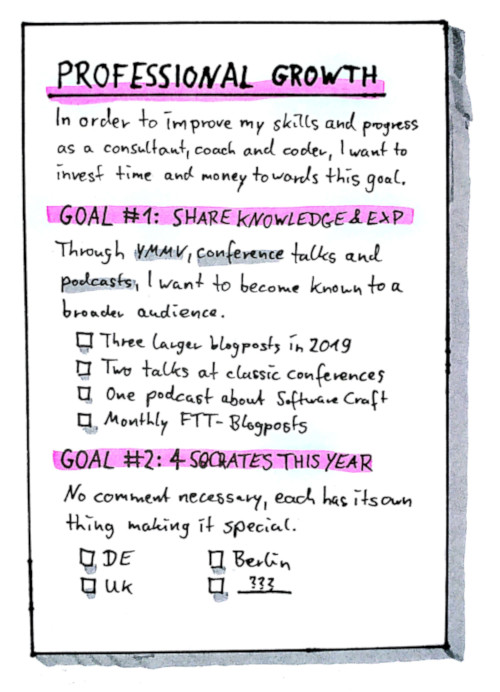 PROFESSIONAL GROWTH
In order to improve my skills and progress
as a consultant, coach and coder, I want to
invest time and money towards this goal.
GOAL #1: SHARE KNOWLEDGE & EXP
Through YMMV, conference talks and
podcasts, I want to become known to a
broader audience.
Three larger blogposts in 2019
Two talks at classic conferences
One podcast about Software Craft
Monthly FTT-Blogposts
GOAL #2: 4 SOCRATES THIS YEAR
No comment necessary, each has its own
thing making it special.
DE Berlin
UK ???